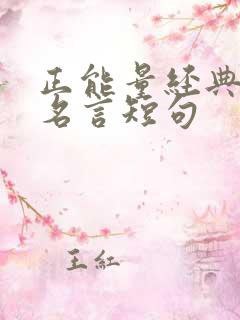 正能量经典
名言短句
王红